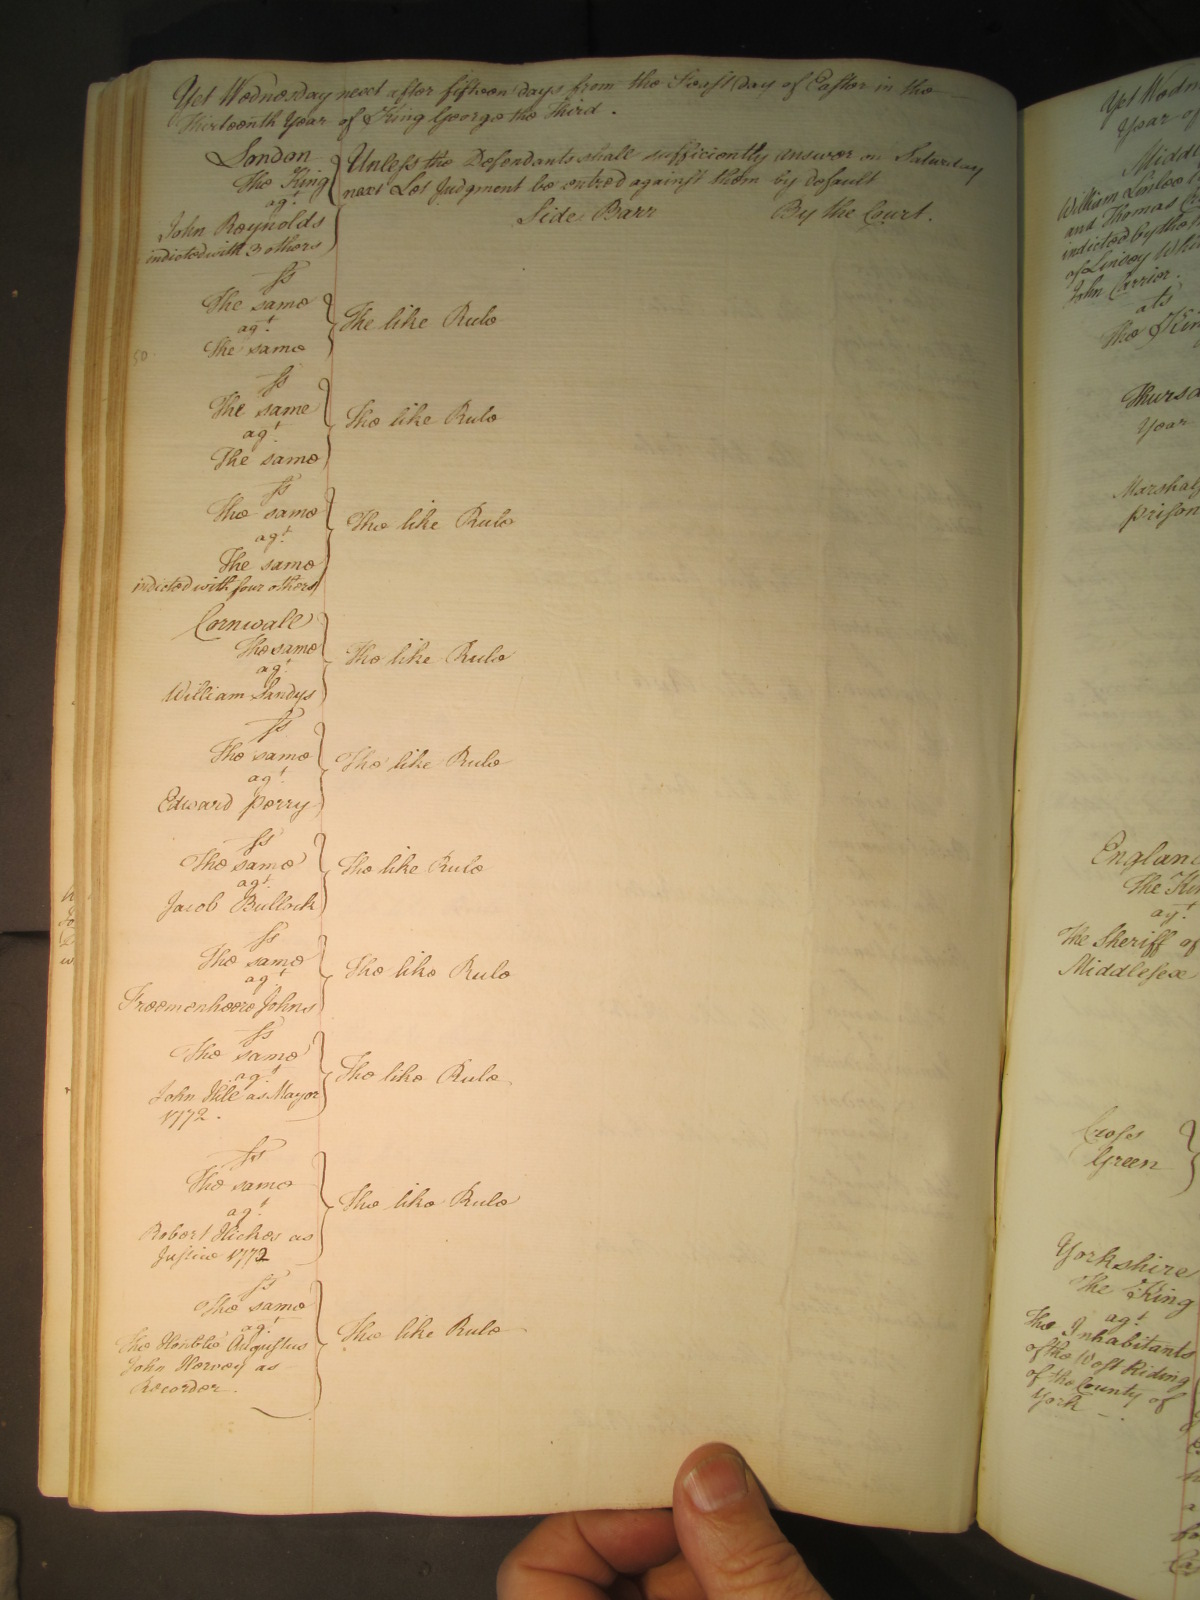 Yet Wednesday next after fifteen days from the Feast day of Easter in the
Thirteenth Year of King George the Third.
London
The King
agt
John Reynolds
indicted with 3 others
Unless the Defendants shall sufficiently answer on Saturday
next Let Judgment be entred against them by default
Side Barr By the Court.
Ss
The same
agt
The same
The like Rule
50
Ss
The same
agt
The same
The like Rule
Ss
The same
agt
The same
indicted with four others
The like Rule
Cornwall
The same
agt
William Sandys
The like Rule
Ss
The same
agt
Edward Perry
The like Rule
Ss
The same
agt
Jacob Bullock
The like Rule
Ss
The same
agt
Johns
The like Rule
Ss
The same
agt
John as Mayor
1772.
The like Rule
Ss
The same
agt
Robert Hickes as
Justice 1772
The like Rule
Ss
The same
agt
The Honble Augustus
John Hervey as
Recorder.
The like Rule
Yet Wedn
Year of
Middl
William
and Thomas
indicted by the
of Linsey
John Carrier.
ats
The Kin
Thursd
Year
Marshal
prison
England
The Kin
agt
The Sheriff of
Middlesex
Cross
Green
Yorkshire
The King
agt
The Inhabitants
of the West Riding
of the County of
York